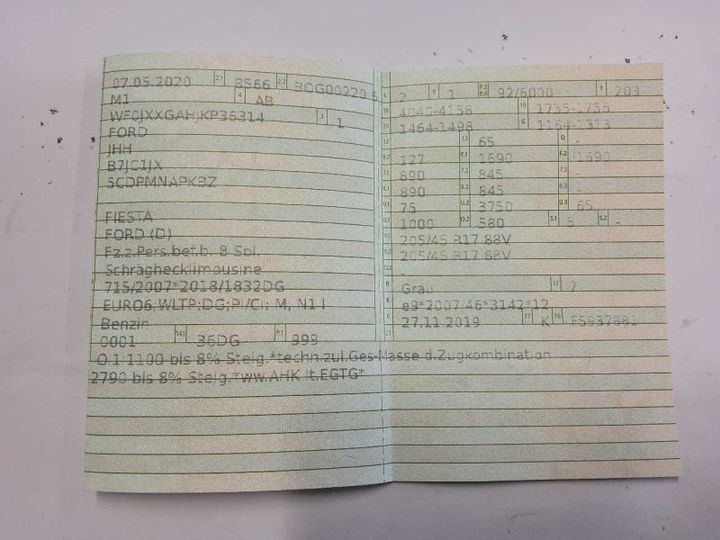 07.05.2020 2.1 8566 2.2 BCG00220 5
M1 4 AB
WF0JXXGAHJKP36314 3 1
FORD
JHH
B7JC1JX
5CDPMNAPKBZ
FIESTA
FORD (D)
Fz.z.Pers.bef.b. 8 Spl.
Schräghecklimousine
715/2007*2018/1832DG
EURO6;WLTP;DG;PI/CI; M, N1 I
Benzin
0001 14.1 36DG P.1 999
L 2 9 1 P.2 P.4 92/6000 T 203
18 4040-4158 19 1735-1735
20 1464-1498 G 1164-1313
12 - 13 65 Q -
127 F.1 1690 F.2 1690
890 7.2 845 -
890 8.2 845 8.3 -
U.1 75 U.2 3750 U.3 65
O.1 1000 O.2 580 S.1 5 S.2 -
205/45 R17 88V
205/45 R17 88V
-
R Grau 11 7
K e9*2007/46*3142*12
6 27.11.2019 17 K 16
21
O.1:1100 bis 8% Steig.*techn.zul.Ges-Masse d.Zugkombination
2790 bis 8% Steig.*ww.AHK lt.EGTG*